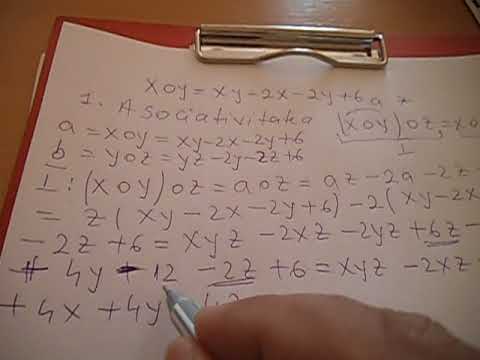 xoy = xy - 2x - 2y + 6
1. Asociativitatea
(xoy)oz = xo
a = xoy = xy - 2x - 2y + 6
I
b = yoz = yz - 2y - 2z + 6
I: (xoy)oz = aoz = az - 2a - 2z
= z(xy - 2x - 2y + 6) - 2(xy - 2x
- 2z + 6 = xyz - 2xz - 2yz + 6z -
+ 4y - 12 - 2z + 6 = xyz - 2xz
+ 4x + 4y